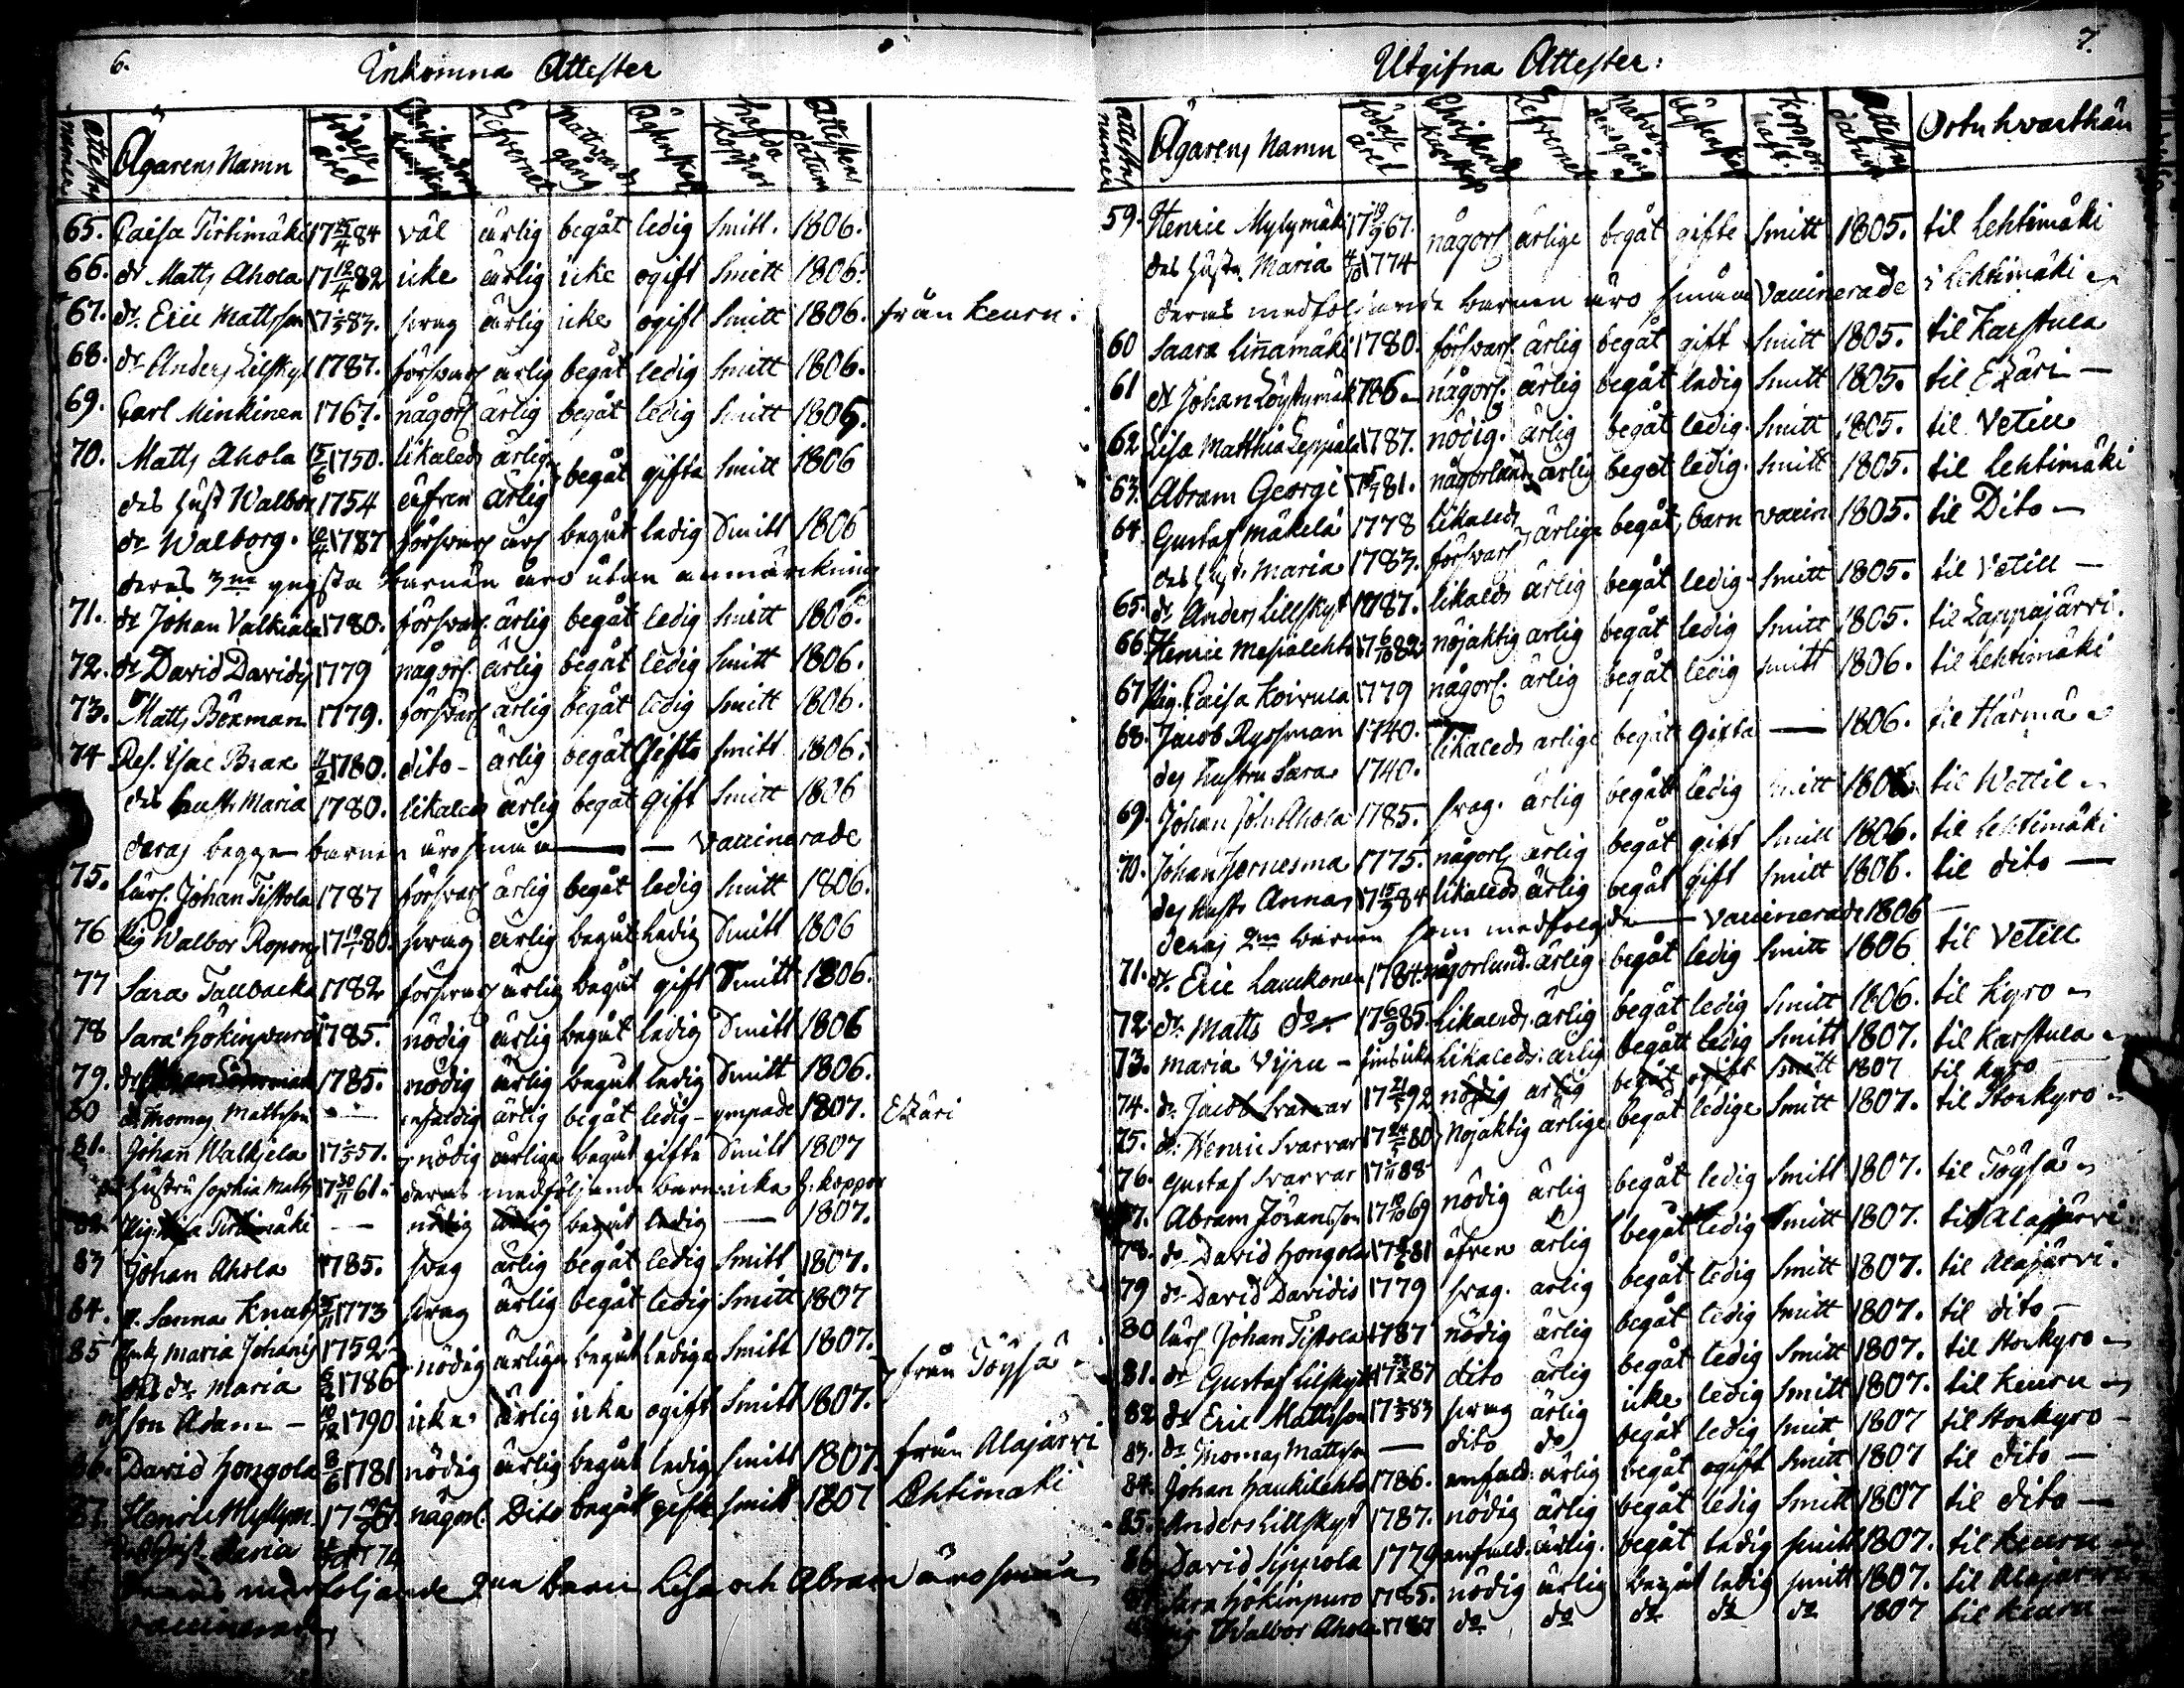 6.
Inkomna Attester
Attestens numer Ägarens Namn födelse året Christendoms kunskap Lefvernet Nattvards gång Ägtenskap hafda koppor Attestens datum
65. Caisa Tirtimäki 17 25/4 84 väl ärlig begåt ledig Smitt. 1806.
66. dr Matts Ahola 17 12/4 82 icke ärlig icke ogift Smitt 1806.
67. dr. Eric Mattsson 17 83. svag ärlig icke ogift Smitt 1806. från Keuru.
68. dr Anders Lilskyt 1787. försvarl ärlig begåt ledig Smitt 1806.
69. Carl Minkinen 1767. någorl ärlig begåt ledig Smitt 1806.
70. Matts Ahola 1750. likaleds ärlig begåt gifta Smitt 1806
des hust Walbor 1754 äfven ärlig
dr Walborg. 1787 försvarl ärl begåt ledig Smitt 1806
deras 3ne yngsta barnen äro utan anmärckning
71. dr Johan Valkiala 1780. försvarl. ärlig begåt ledig Smitt 1806.
72. dr David Davids 1779 någorl. ärlig begåt ledig Smitt 1806.
73. Matts Böxman 1779. försvarl ärlig begåt ledig Smitt 1806.
74 Ref. Isac Brax 1780. dito - ärlig begåt Gifta Smitt 1806.
des hustr Maria 1780. likaleds ärlig begåt Gift Smitt 1806
deras begge barnen äro små — Vaccinerade
75. lärl. Johan Tistola 1787 försvarl ärlig begåt ledig Smitt 1806.
76 Pig Walbor Ropon 17 80. svag ärlig begåt ledig Smitt 1806
77 Sara Tallbacka 1782 försvarl ärlig begåt gift Smitt 1806.
78 Sara hökinpuro 1785. nödig ärlig begåt ledig Smitt 1806
79. dr 1785. nödig ärlig begåt ledig Smitt 1806.
80 dr Thomas Mattsson — enfaldig ärlig begåt ledig - ympade 1807. Ezäri
81. Johan Walkjela 17 57. nödig ärliga begåt gifta Smitt 1807
Hustru Sophia Matts 17 30/11 61. deras medföljande barn icke h. koppor
82. Pig. Tirtimäki — nödig ärlig begåt ledig — 1807.
83 Johan Ahola 1785. svag ärlig begåt ledig Smitt 1807.
84. p. Sanna Knuts 1773 svag ärlig begåt ledig Smitt 1807
85 Enk. Maria Johans 1752 nödig ärliga begåt lediga Smitt 1807. från Töysä
des dr. Maria 1786
son Adam - 10/12 1790 icke ärlig icke ogift Smitt 1807.
86. David hongola 8/6 1781 nödig ärlig begåt ledig Smitt 1807. från Alajärvi
87. Henric Myllym. 17 67. någorl. Dito begåt gifte Smitt 1807 Lehtimäki
Maria 1774
medföljande 2ne barn Lisa och Abram äro små
vaccinerade
7.
Utgifna Attester:
Attestens numer Ägarens Namn födelse året Christendoms kunskap Lefvernet Natvardsgång Ägtenskap Koppor haft. Attestens datum Orten hvarthän
59. Henric Mylymäki 17 19/9 67. någorl ärlige begåt gifte Smitt 1805. til Lehtimäki
des hustr. Maria 4/10 1774
deras medföljande barnen äro små Vaccinerade i Lehtimäki
60 Saara Linnamäki 1780. försvarl ärlig begåt gift Smitt 1805. til Karstula
61 dr Johan Löytymäki 1786 någorl. ärlig begåt ledig Smitt 1805. til Ezäri —
62 Lisa Matthia Leppälä 1787. nödig. ärlig begåt ledig. Smitt 1805. til Vetill
63. Abram Georgi 17 81. någorlunda ärlig begåt ledig. Smitt 1805. til Lehtimäki
64 Gustaf Mäkelä 1778 likaleds ärlige begåt, barn vaccin 1805. til Dito
des hust. Maria 1783. försvarl
65. dr Anders Lillskyt 1787. likaleds ärlig begåt ledig Smitt 1805. til Vetill —
66. Henric Mesialehto 17 6/10 82 nöjaktig ärlig begåt ledig Smitt 1805. til Lappajärvi.
67 Pig. Caisa Koivula 1779 någorl. ärlig begåt ledig Smitt 1806. til Lehtimäki
68. Jacob Ryssman 1740. likaleds ärlige begåt Gifta — 1806. til Härmä
des Hustru Sara 1740.
69. Johan Joh Ahola 1785. svag. ärlig begåt ledig Smitt 1806 til Wettil
70. Johan Jernesma 1775. någorl ärlig begåt gift Smitt 1806. til Lehtimäki
des hustr Anna 17 15/9 84 likaleds ärlig begåt gift Smitt 1806. til dito —
deras 2ne barnen som medfölgde — vaccinerade 1806
71. dr. Eric Laukonen 1784. någorlund. ärlig begåt ledig Smitt 1806 til Vetill
72. dr. Matts do 17 6/9 85. Likaleds. ärlig begåt ledig Smitt 1806. til Kyro
73. Maria Vijru - finns icke Likaleds: ärlig begåt ledig Smitt 1807. til Karstula
74. dr. Jacob Svarvar 17 21/5 92 nödig ärlig begåt ogift Smitt 1807 til Kyro
75. dr. Henric Svarvar 17 24/5 80 Nöjaktig ärlige begåt ledige Smitt 1807. til Storkyro
76. Gustaf Svarvar 17 88
77. Abram Jöransson 17 69 nödig ärlig begåt ledig Smitt 1807. til Töysä
78. dr David hongola 17 81 äfven ärlig begåt ledig Smitt 1807. til Alajärvi
79 dr David Davidis 1779 svag. ärlig begåt ledig Smitt 1807. til Alajärvi.
80 lärl Johan Tistola 1787 nödig ärlig begåt ledig Smitt 1807. til dito -
81. dr Gustaf Lilskyt 17 87 dito ärlig begåt ledig Smitt 1807. til Storkyro
82 dr Eric Mattsson 17 83 svag ärlig icke ledig Smitt 1807. til Keuru
83. dr. Thomas Mattsson — dito do begåt ledig Smitt 1807 til Storkyro -
84. Johan Haukilehto 1786. enfald: ärlig begåt ogift Smitt 1807 til dito —
85. Anders Lillskyt 1787. nödig ärlig begåt ledig Smitt 1807 til dito —
86 David Sippola 1779 enfald. ärlig. begåt ledig Smitt 1807. til Keuru
87 Sara hökinpuro 1785. nödig ärlig begåt ledig Smitt 1807. til Alajärvi
Walbor Ahola 1787 do do do do do 1807 til Keuru